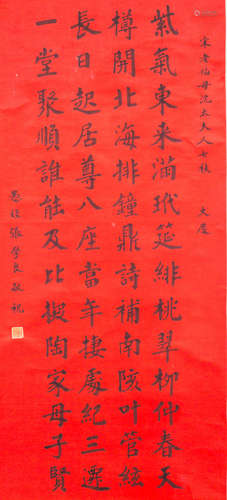 宋老伯母沈太夫人七秩 大慶
紫氣東来滿玳筵緋桃翠柳仲春天
樽開北海排鐘鼎詩補南陔叶管絃
長日起居尊八座當年棲處紀三遷
一堂聚順誰能及比擬陶家母子賢
愚侄張學良敬祝